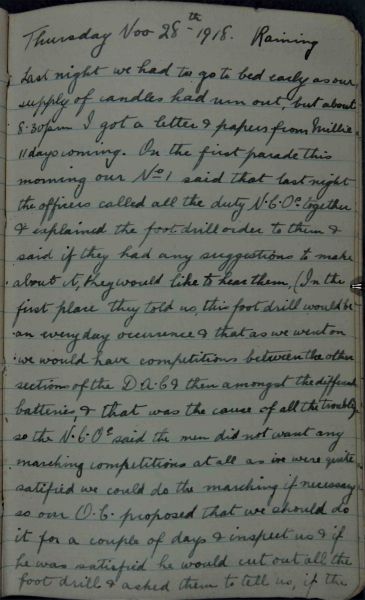 Thursday Nov 28th 1918. Raining
Last night we had to go to bed early as our
supply of candles had run out, but about
8.30pm I got a letter & papers from Millie
11 days coming. On the first parade this
morning our No 1 said that last night
the officers called all the duty N.C.Os together
& explained the foot drill order to them &
said if they had any suggestions to make
about it, they would like to hear them, (In the
first place they told us, this foot drill would be
an everyday occurence & that as we went on
we would have competitions between the other
sections of the D.A.C & then amongst the different
batteries & that was the cause of all the trouble)
so the N.C.Os said the men did not want any
marching competitions at all as we were quite
satisfied we could do the marching if necessary
so our O.C. proposed that we should do
it for a couple of days & inspect us & if
he was satisfied he would cut out all the
foot drill & asked them to tell us, if the